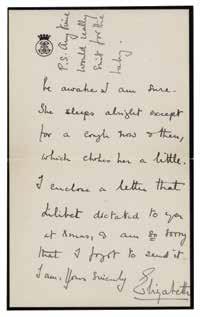 be awake I am sure.
She sleeps alright except
for a cough now & then,
which chokes her a little.
I enclose a letter that
Lilibet dictated to you
at Xmas, & am so sorry
that I forgot to send it.
I am, Yours Sincerely
Elizabeth
P.S. Any time
would really
suit for the
baby.